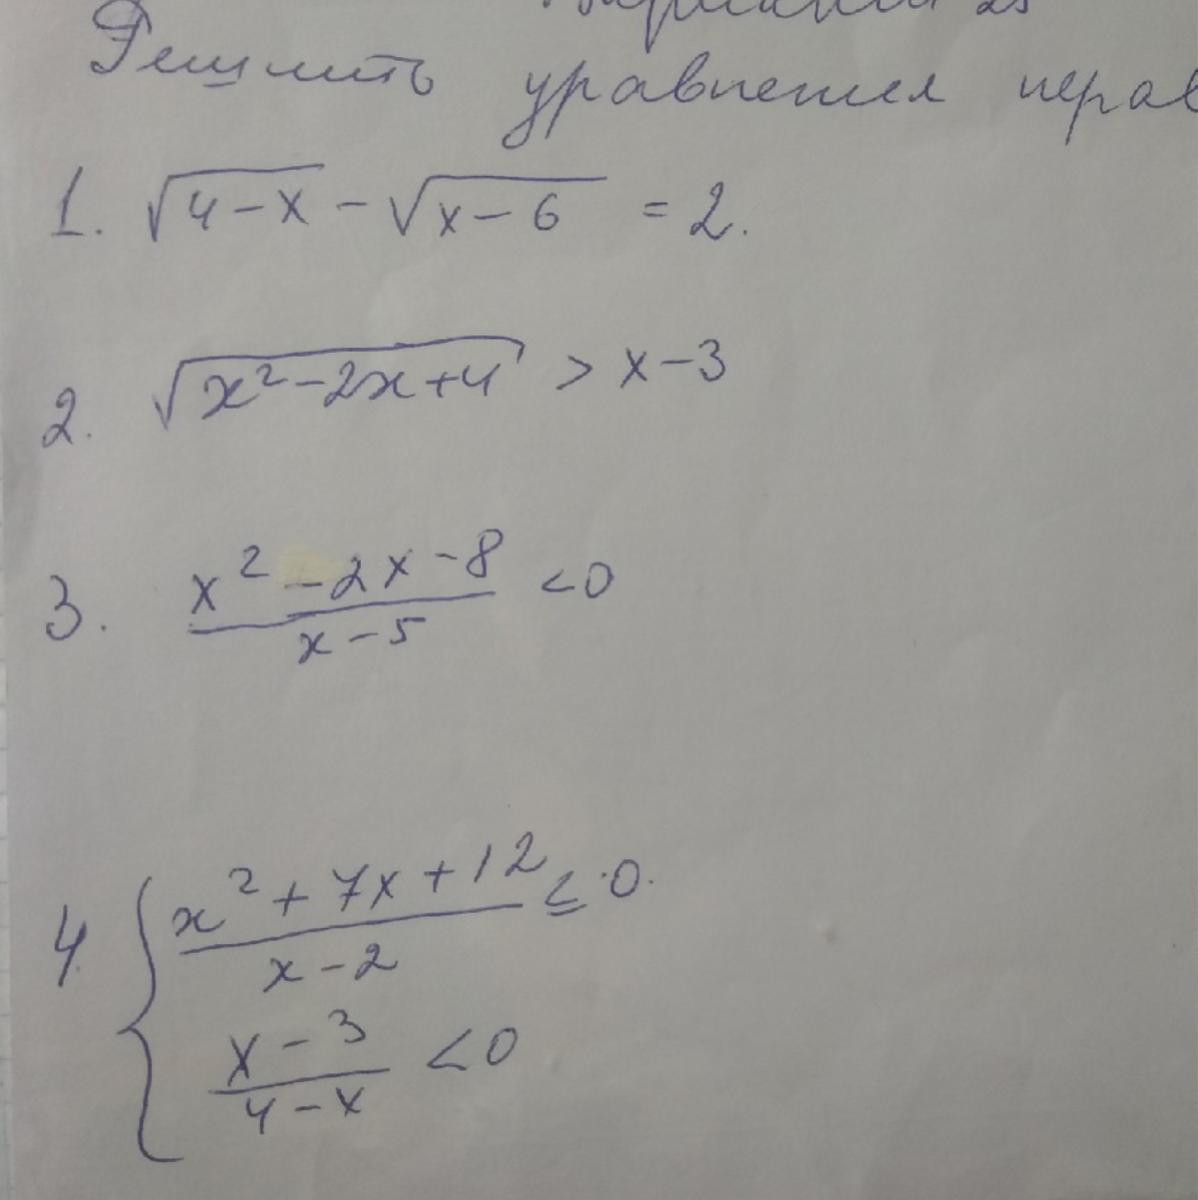 Решить уравнения нерав
1. √4-x - √x-6 = 2.
2. √x²-2x+4 > x-3
3. x²-2x-8 / x-5 <0
4. { x²+7x+12 / x-2 ≤ 0.
x-3 / 4-x <0